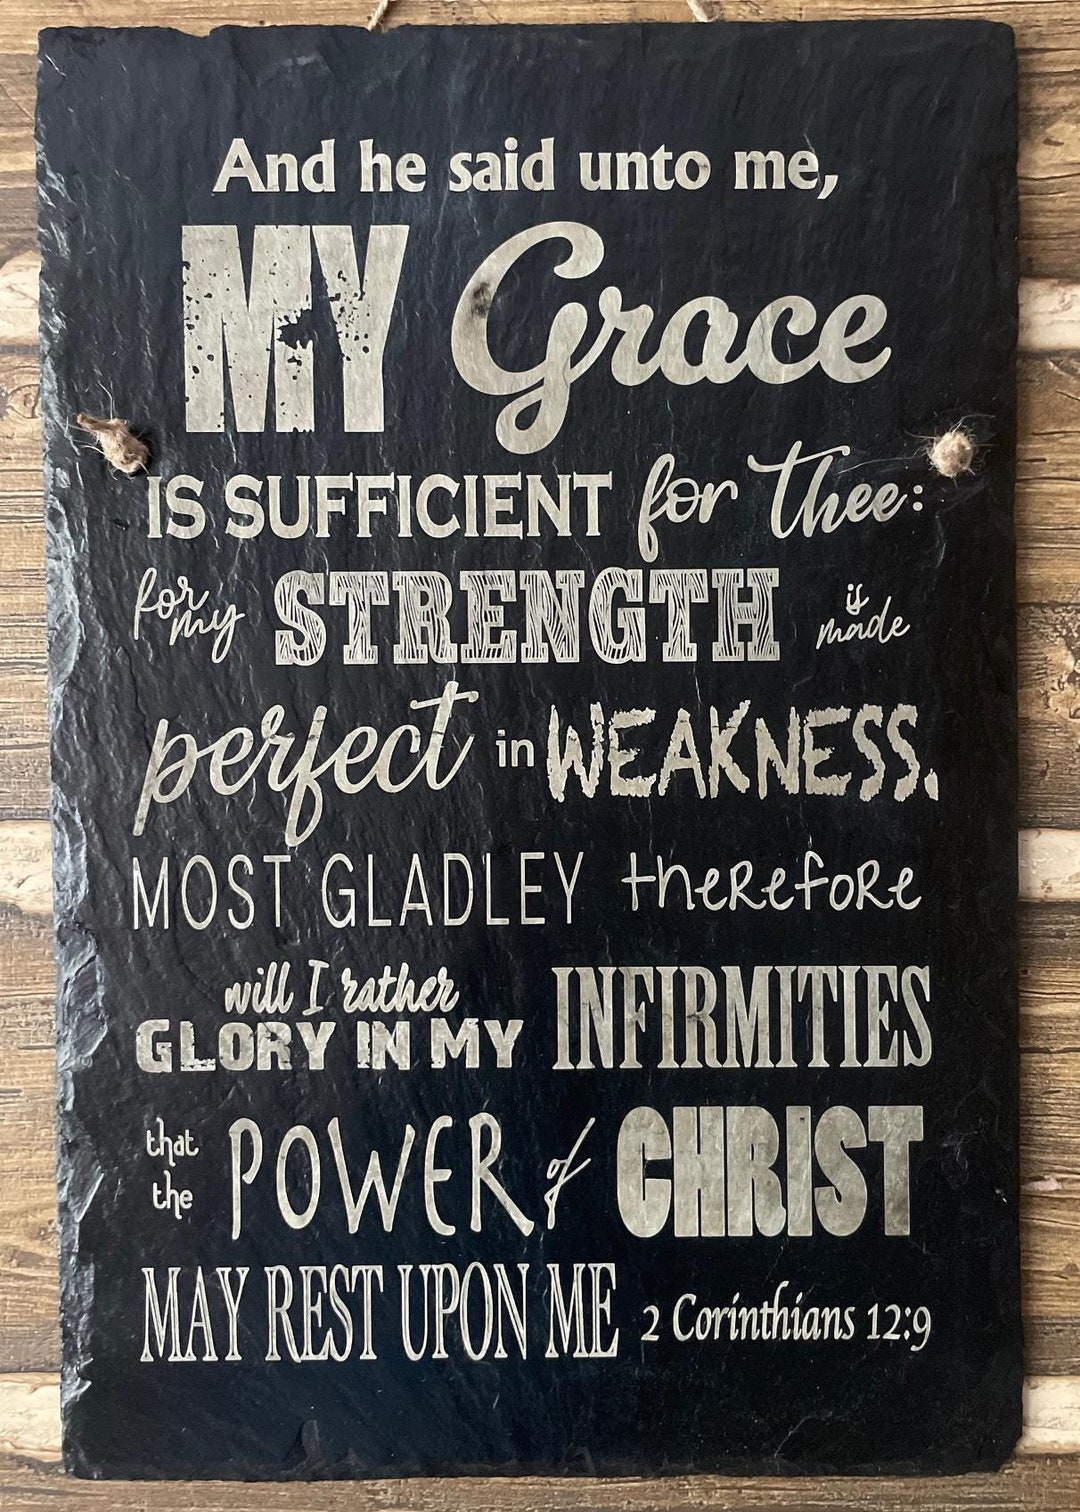 And he said unto me,
MY Grace
IS SUFFICIENT for Thee:
for my STRENGTH is made
perfect in WEAKNESS.
MOST GLADLEY therefore
will I rather
GLORY IN MY INFIRMITIES
that the POWER of CHRIST
MAY REST UPON ME 2 Corinthians 12:9